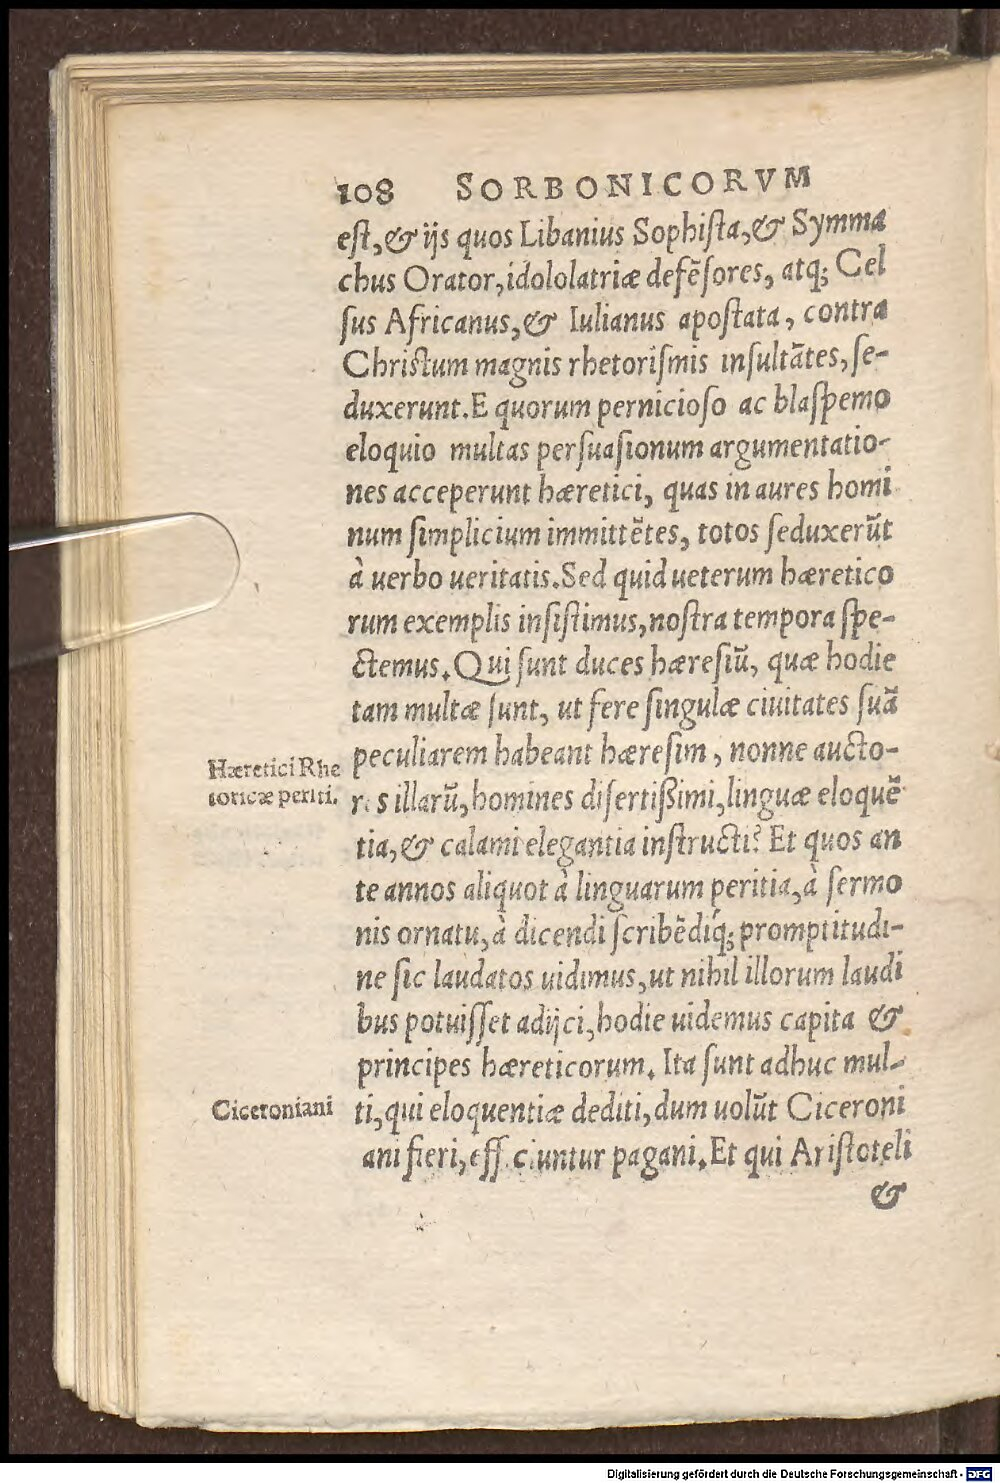 108 SORBONICORVM
eſt, & ijs quos Libanius Sophiſta, & Symma
chus Orator, idololatriæ defẽſores, atq; Cel
ſus Africanus, & Iulianus apoſtata, contra
Chriſtum magnis rhetoriſmis inſultãtes, ſe-
duxerunt. E quorum pernicioſo ac blaſpemo
eloquio multas perſuaſionum argumentatio-
nes acceperunt hæretici, quas in aures homi
num ſimplicium immittẽtes, totos ſeduxerũt
à uerbo ueritatis. Sed quid ueterum hæretico
rum exemplis inſiſtimus, noſtra tempora ſpe-
ctemus. Qui ſunt duces hæreſiũ, quæ hodie
tam multæ ſunt, ut fere ſingulæ ciuitates ſuã
peculiarem habeant hæreſim, nonne aucto-
Hæretici Rhe
toricæ periti.
res illarũ, homines diſertißimi, linguæ eloquẽ
tia, & calami elegantia inſtructi? Et quos an
te annos aliquot à linguarum peritia, à ſermo
nis ornatu, à dicendi ſcribẽdíq; promptitudi-
ne ſic laudatos uidimus, ut nihil illorum laudi
bus potuiſſet adijci, hodie uidemus capita &
principes hæreticorum. Ita ſunt adhuc mul-
Ciceroniani
ti, qui eloquentiæ dediti, dum uolũt Ciceroni
ani fieri, efficiuntur pagani. Et qui Ariſtoteli
&
Digitalisierung gefördert durch die Deutsche Forschungsgemeinschaft - DFG